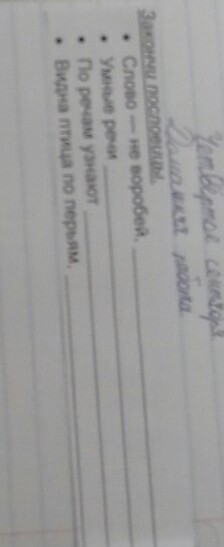 Четвёртое сентября
Домашняя работа
Закончи пословицы.
• Слово — не воробей,
• Умные речи
• По речам узнают
• Видна птица по перьям,